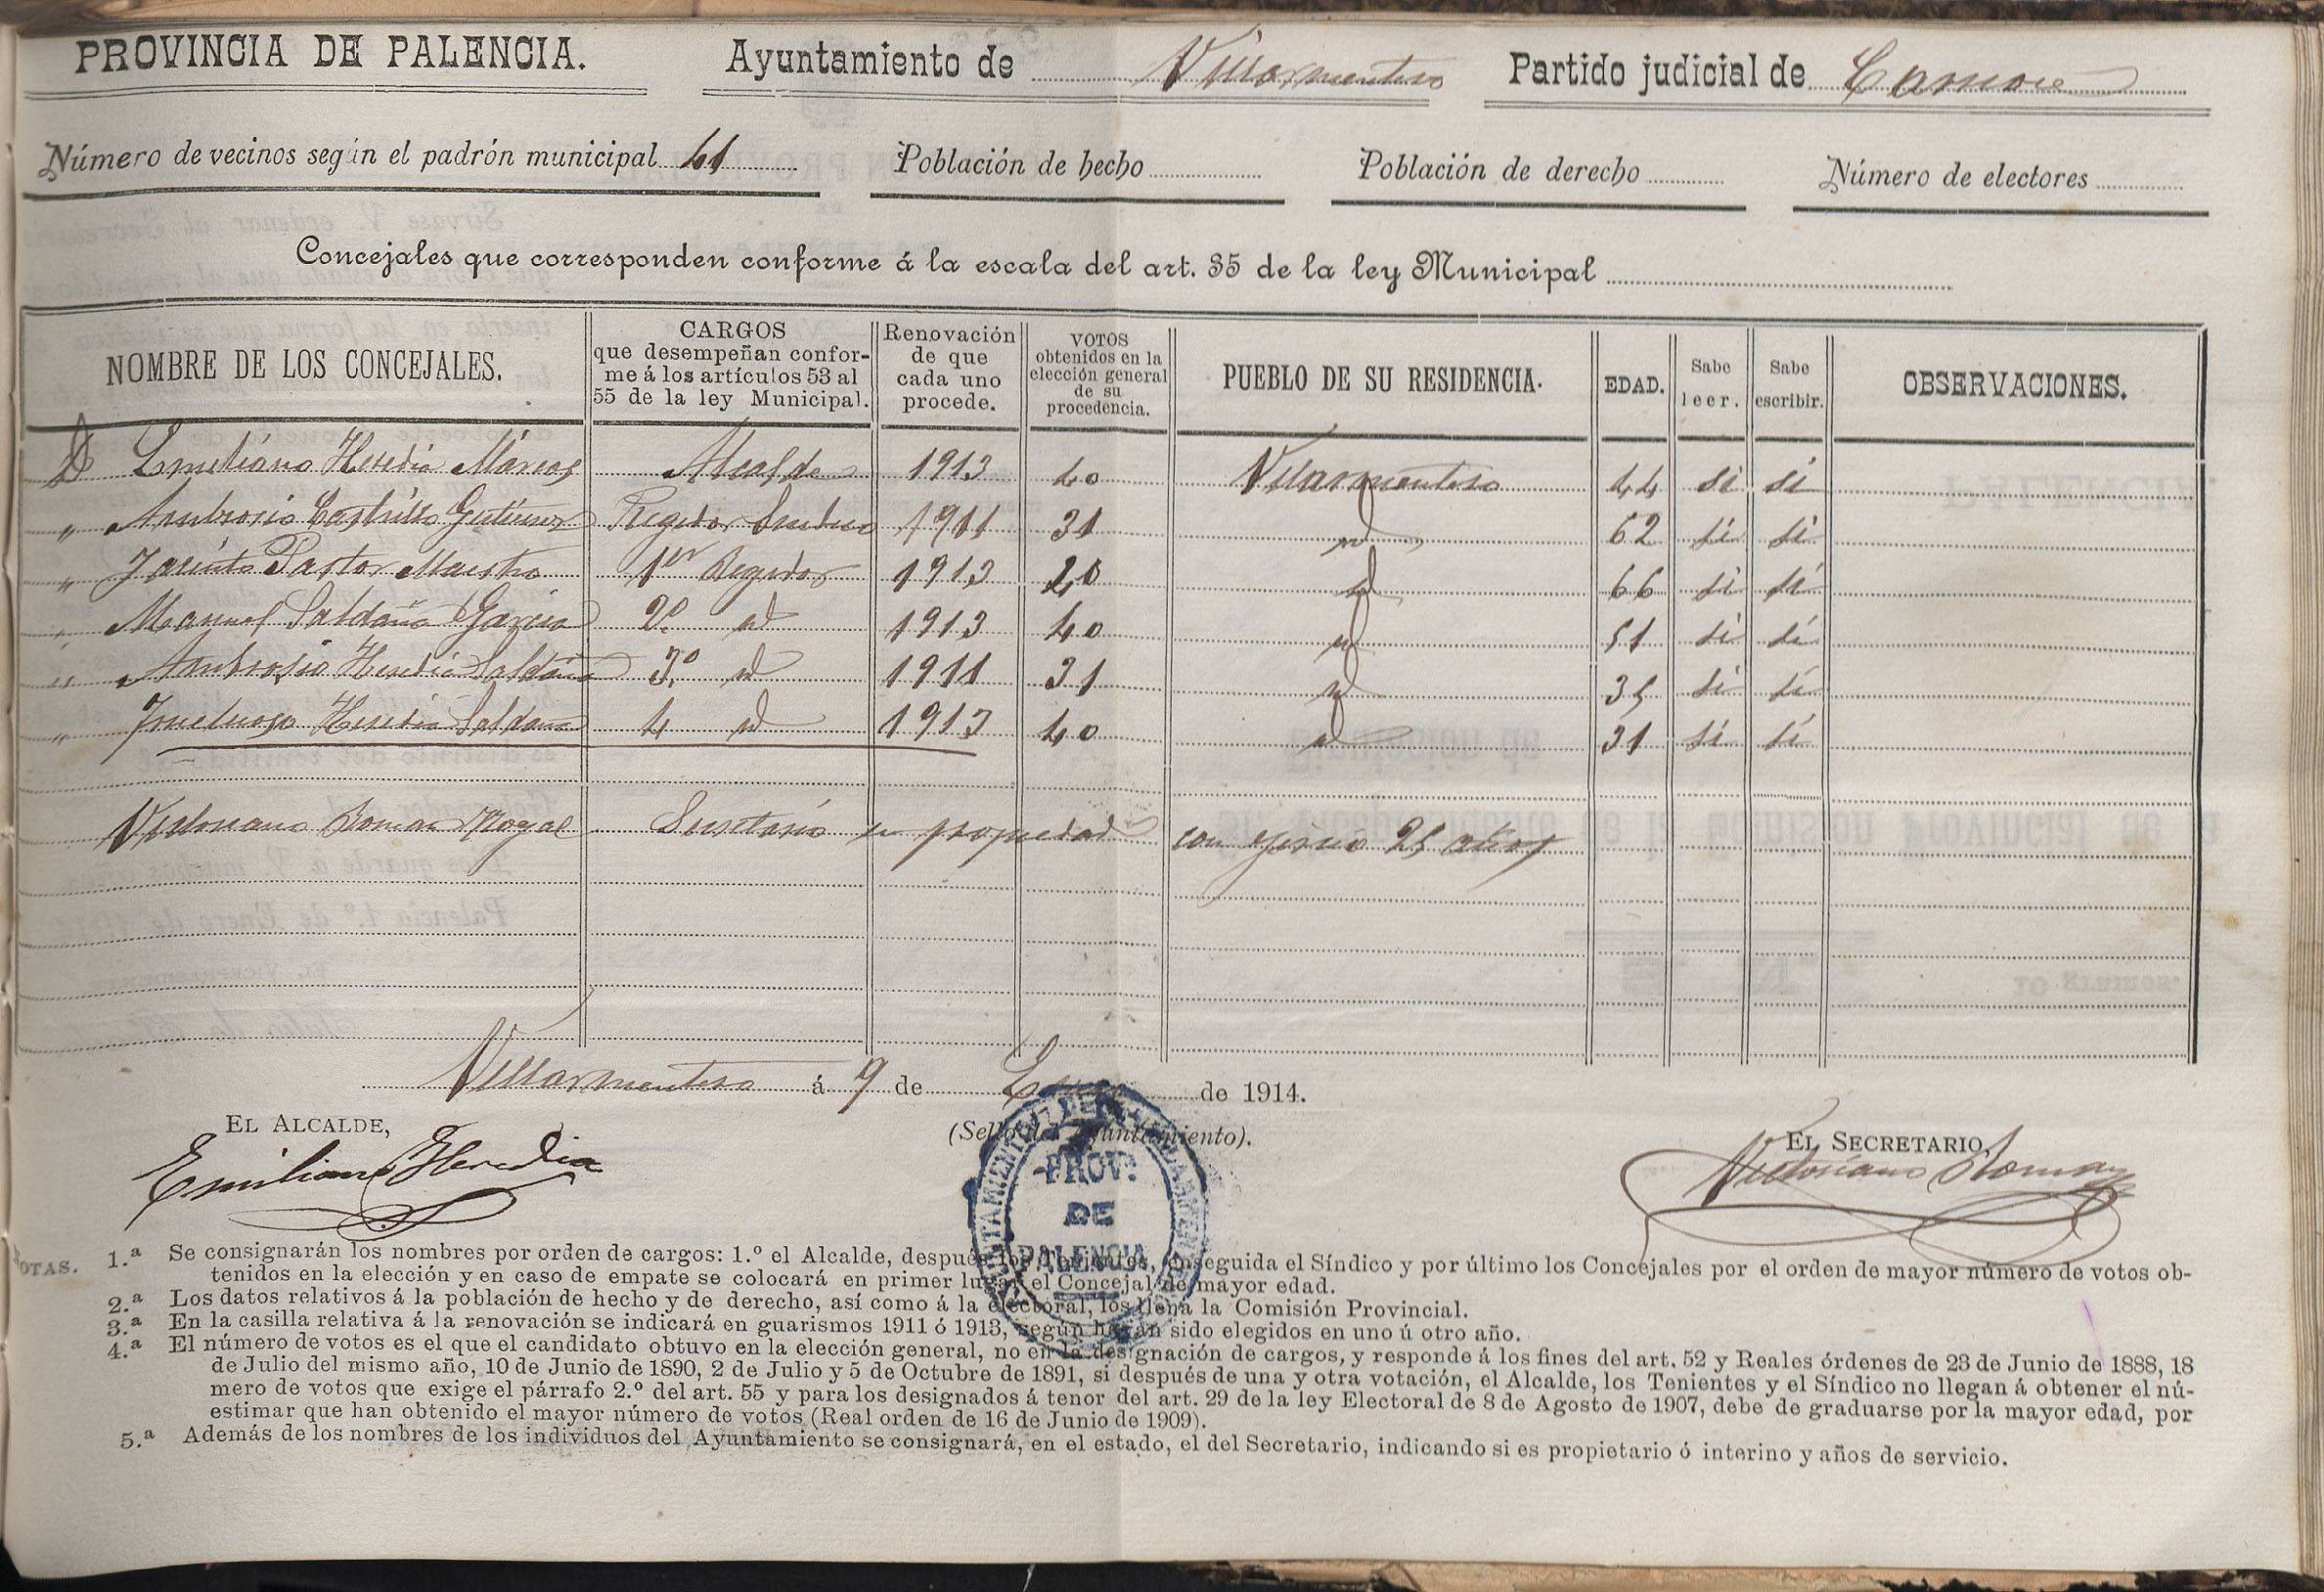 PROVINCIA DE PALENCIA. Ayuntamiento de Villarmentero Partido judicial de Carrión
Número de vecinos según el padrón municipal 41 Población de hecho Población de derecho Número de electores
Concejales que corresponden conforme á la escala del art. 35 de la ley Municipal
NOMBRE DE LOS CONCEJALES. CARGOS que desempeñan conforme á los artículos 53 al 55 de la ley Municipal. Renovación de que cada uno procede. VOTOS obtenidos en la elección general de su procedencia. PUEBLO DE SU RESIDENCIA. EDAD. Sabe leer. Sabe escribir. OBSERVACIONES.
D Emiliano Heredia Marcos Alcalde 1913 40 Villarmentero 44 si si
" Ambrosio Castrillo Gutierrez Regidor Sindico 1911 31 id 62 si si
" Jacinto Pastor Maestro 1er Regidor 1913 40 id 66 si si
" Manuel Saldaña Garcia 2º id 1913 40 id 51 si si
" Ambrosio Heredia Saldaña 3º id 1911 31 id 35 si si
" Fructuoso Heredia Saldaña 4 id 1913 40 id 31 si si
Victoriano Roman Secretario en propiedad con 25 años
Villarmentero á 9 de Enero de 1914.
EL ALCALDE, (Sello del Ayuntamiento). EL SECRETARIO,
Emiliano Heredia Victoriano Roman
PROV.
DE
PALENCIA
NOTAS. 1.ª Se consignarán los nombres por orden de cargos: 1.º el Alcalde, después los Tenientes, enseguida el Síndico y por último los Concejales por el orden de mayor número de votos ob-
tenidos en la elección y en caso de empate se colocará en primer lugar el Concejal de mayor edad.
2.ª Los datos relativos á la población de hecho y de derecho, así como á la electoral, los llena la Comisión Provincial.
3.ª En la casilla relativa á la renovación se indicará en guarismos 1911 ó 1913, según hayan sido elegidos en uno ú otro año.
4.ª El número de votos es el que el candidato obtuvo en la elección general, no en la designación de cargos, y responde á los fines del art. 52 y Reales órdenes de 23 de Junio de 1888, 18
de Julio del mismo año, 10 de Junio de 1890, 2 de Julio y 5 de Octubre de 1891, si después de una y otra votación, el Alcalde, los Tenientes y el Síndico no llegan á obtener el nú-
mero de votos que exige el párrafo 2.º del art. 55 y para los designados á tenor del art. 29 de la ley Electoral de 8 de Agosto de 1907, debe de graduarse por la mayor edad, por
estimar que han obtenido el mayor número de votos (Real orden de 16 de Junio de 1909).
5.ª Además de los nombres de los individuos del Ayuntamiento se consignará, en el estado, el del Secretario, indicando si es propietario ó interino y años de servicio.